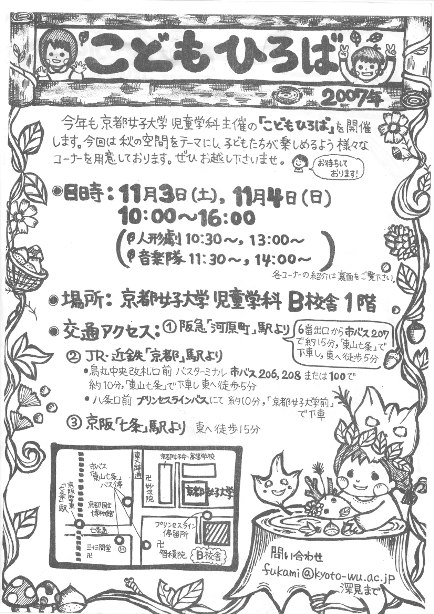 こどもひろば
2007年
今年も京都女子大学児童学科主催の「こどもひろば」を開催
します。今回は秋の空間をテーマにし、子どもたちが楽しめるよう様々な
コーナーを用意しております。ぜひお越し下さいませ。
お待ちして
おります!
●日時:11月3日(土),11月4日(日)
10:00〜16:00
人形劇 10:30〜, 13:00〜
音楽隊 11:30〜, 14:00〜
各コーナーの紹介は裏面をご覧下さい。
●場所:京都女子大学 児童学科 B校舎1階
●交通アクセス:①阪急「河原町」駅より
6番出口から市バス207
で約15分,「東山七条」で
下車し、東へ徒歩5分
②JR・近鉄「京都」駅より
●烏丸中央改札口前 バスターミナル 市バス206, 208 または100で
約10分,「東山七条」で下車し東へ徒歩5分
●八条口前 プリンセスラインバスにて 約10分,「京都女子大学前」
で下車
③京阪「七条」駅より 東へ徒歩15分
市バス
「東山七条」
バス停
京都国立
博物館
七条通
三十三間堂
卍
京都女子大学
プリンセスライン
停留所
卍
智積院
B校舎
問い合わせ
fukami@kyoto-wu.ac.jp
深見まで